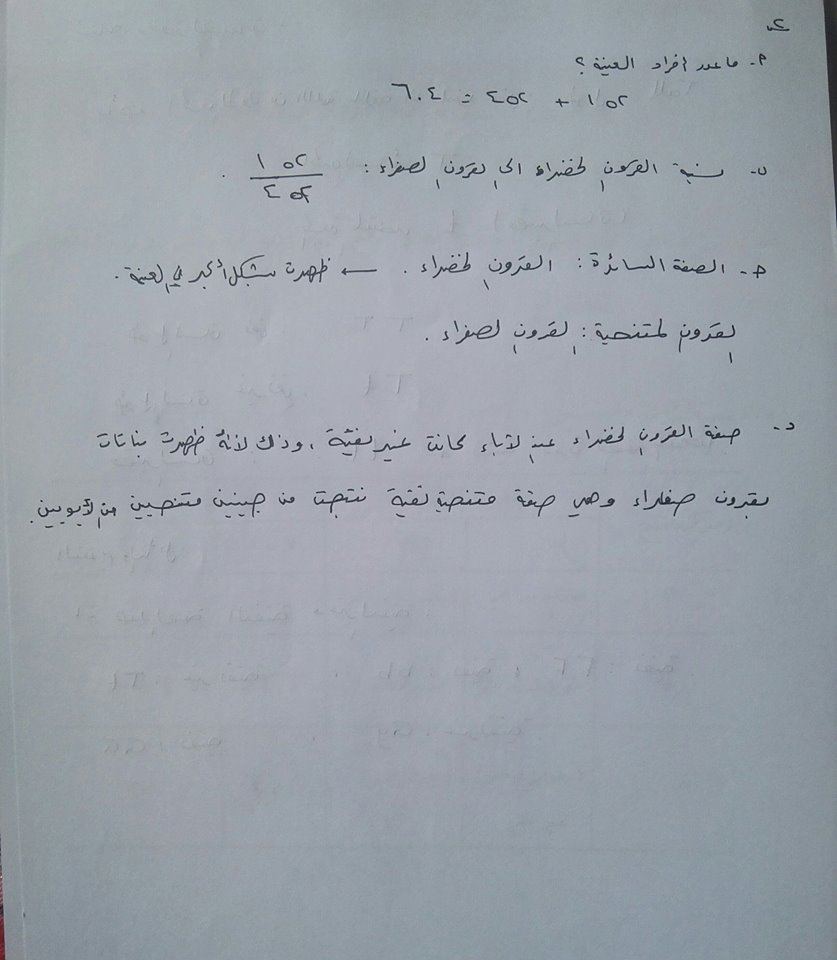 ٢-
أ- ما عدد أفراد العينة ؟
١٥٢ + ٤٥٢ = ٦٠٤
ب- نسبة القرون الخضراء الى القرون الصفراء : ١٥٢ / ٤٥٢ .
ج- الصفة السائدة : القرون الخضراء . ← ظهرت بشكل أكبر في العينة .
القرون المتنحية : القرون الصفراء .
د- صفة القرون الخضراء عند الآباء كانت غير نقية ، وذلك لأنه ظهرت نباتات
بقرون صفراء وهي صفة متنحية نقية نتجت من جينين متنحيين من الأبوين .